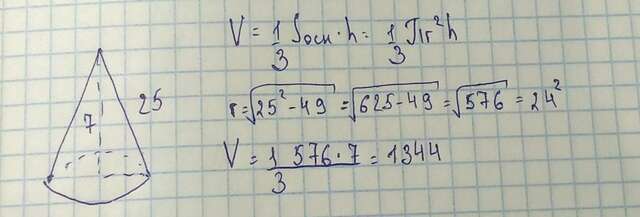 V = 1/3 Sосн · h = 1/3 πr²h
7
25
r = √(25² - 49) = √(625 - 49) = √576 = 24²
V = 1/3 576 · 7 = 1344